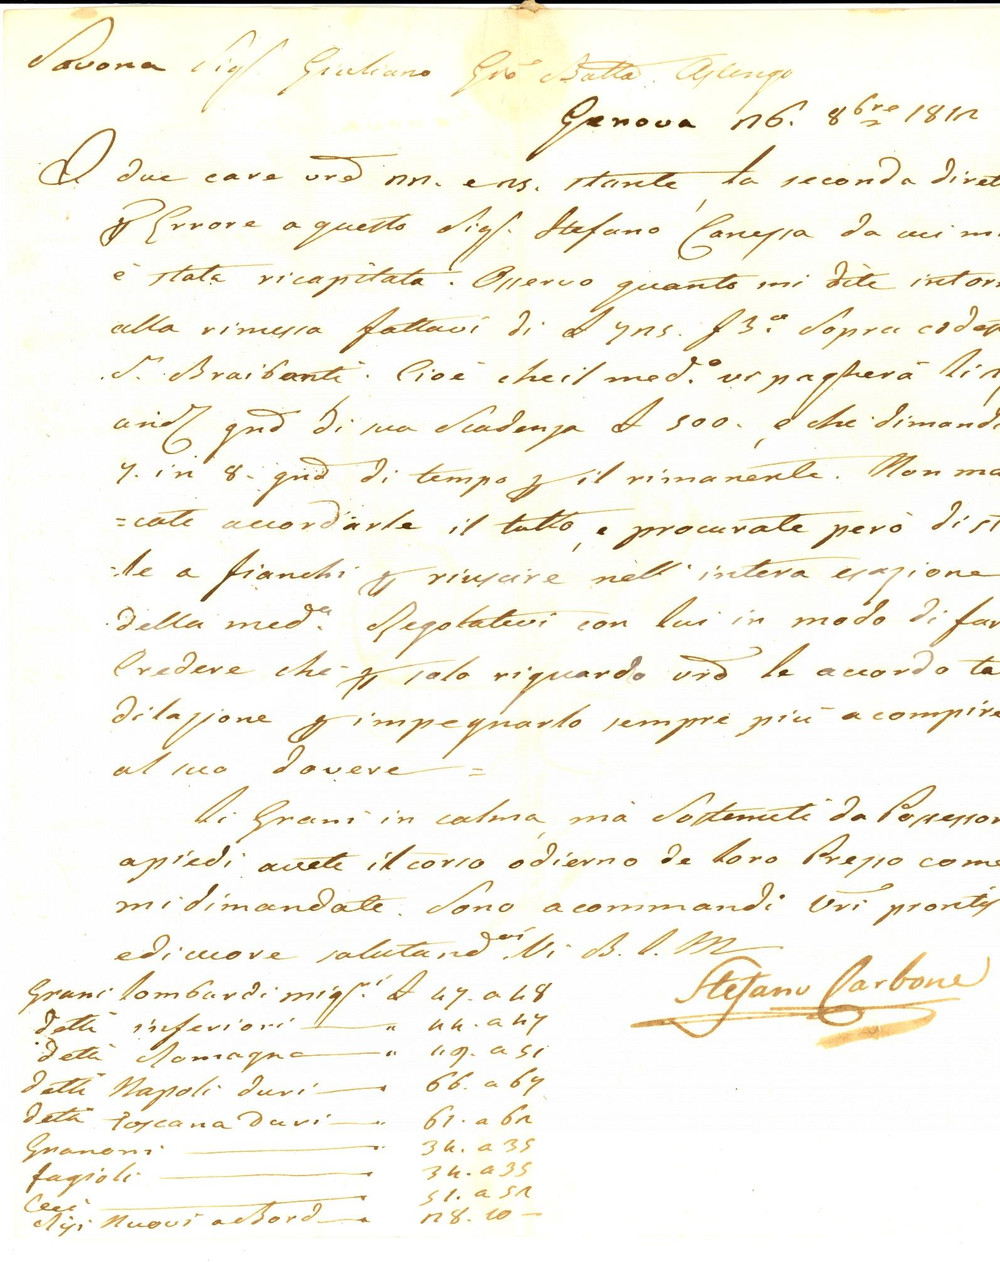 Savona Sig.r Giuliano Gio Batta Assengo
Genova 26. 8bre 1812
I due care vre 22. e 25. stante, la seconda diret
p Errore a questo Sig.r Stefano Canessa da cui mi
è stata ricapitata. Osservo quanto mi dite intorn
alla rimessa fattavi di £ f 3.co Sopra codest
S.r Braibanti. Cioè che il med.o vi pagherà li
di sua Scadenza £ 500. e che dimanda
7. in 8. di tempo p il rimanente. Non ma
=cate accordarle il tutto, e procurate però di st
=le a fianchi p riuscire nell' intera esazione
della med.a Regolatevi con lui in modo di far
Credere che p solo riguardo vro le accordo ta
dilazione p impegnarlo sempre più a compire
al suo dovere =
li Grani in calma, mà Sostenuti da Possessor
a piedi avete il corso odierno de loro Prezzo come
mi dimandate. Sono a commandi Vri pronti
ed in core salutandovi Vi B. l. M
Stefano Carbone
Grani lombardi mig.ri £ 47. a 48
detti inferiori " 44. a 47
detti Romagna " 49. a 51
detti Napoli duri " 66. a 67
detti Toscana duri " 61. a 62
Granoni " 34. a 35
fagioli " 34. a 35
Ceci 51. a 52
Nuovi a Bord " 28. 10 -